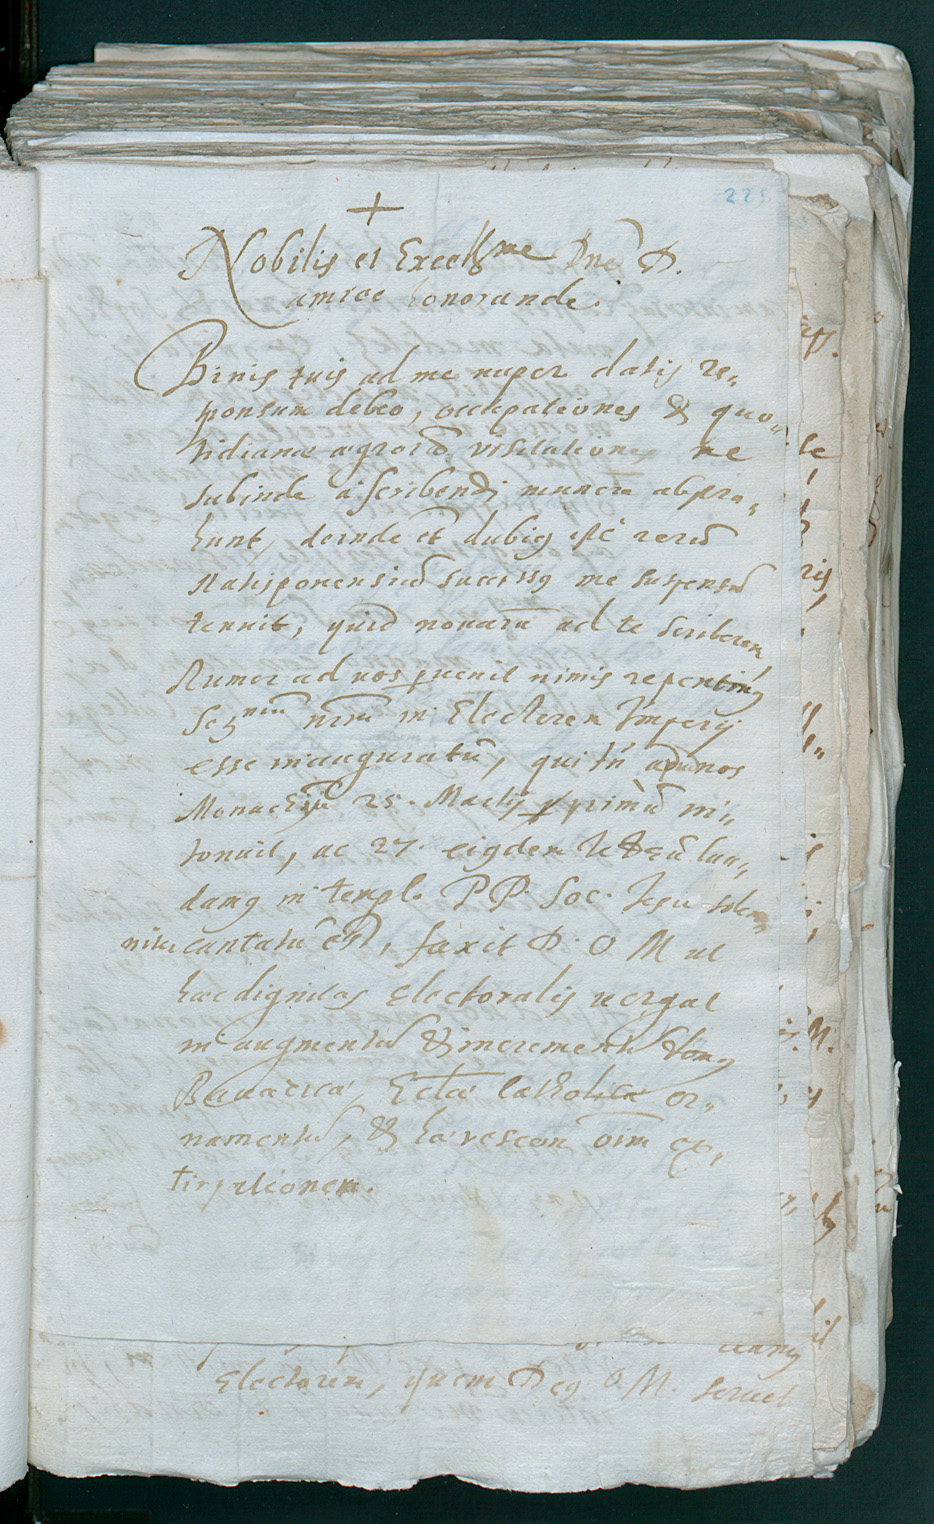 225
+
Nobilis et Excellme Dne D.
amice honorande.
Binis tuis ad me nuper datis re„
sponsum debeo, occupationes & quo„
tidianae aegrorū visitationes me
subinde à scribendi munere abstra„
hunt, deinde et dubiq ist rerū
Ratisponensiū successq me suspensū
tenuit, quid novarū ad te scriberem,
Rumor ad vos pvenit nimis repentinq
Sermum nrm in Electorem Imperij
esse inauguratū, qui tn̄ apud nos
Monachij 25. Martij primū in„
tonuit, ac 27. eiqdem Te Deū lau„
damq in templo P P. Soc. Jesu solem„
niter cantatū est, faxit D. O M ut
haec dignitas Electoralis vergat
in augmentū & incrementū domq
Bavaricae, Eccłae Catholicae or„
namentū, & haereseon oīm ex„
tirpationem.
Electorem, quem Deq O. M. servet